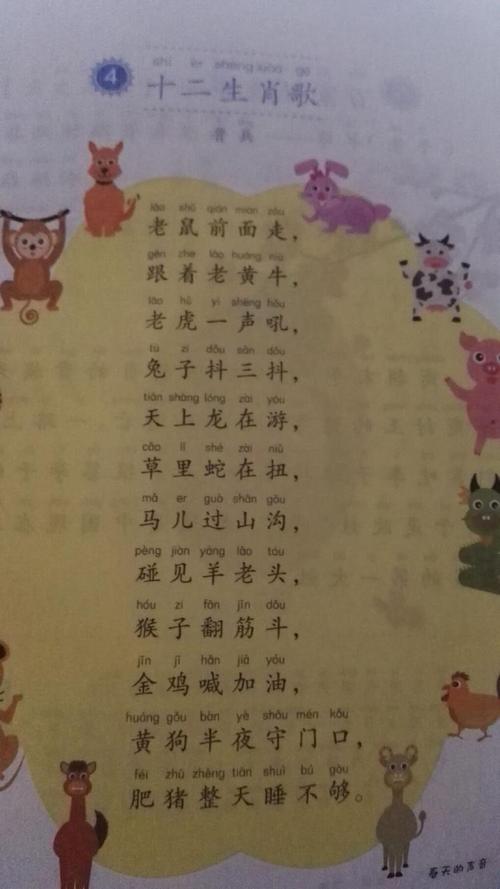 4
shí èr shēng xiào gē
十二生肖歌
晋兵
lǎo shǔ qián miàn zǒu
老鼠前面走，
gēn zhe lǎo huáng niú
跟着老黄牛，
lǎo hǔ yì shēng hǒu
老虎一声吼，
tù zi dǒu sān dǒu
兔子抖三抖，
tiān shàng lóng zài yóu
天上龙在游，
cǎo lǐ shé zài niǔ
草里蛇在扭，
mǎ er guò shān gōu
马儿过山沟，
pèng jiàn yáng lǎo tóu
碰见羊老头，
hóu zi fān jīn dǒu
猴子翻筋斗，
jīn jī hǎn jiā yóu
金鸡喊加油，
huáng gǒu bàn yè shǒu mén kǒu
黄狗半夜守门口，
féi zhū zhěng tiān shuì bú gòu
肥猪整天睡不够。
春天的声音